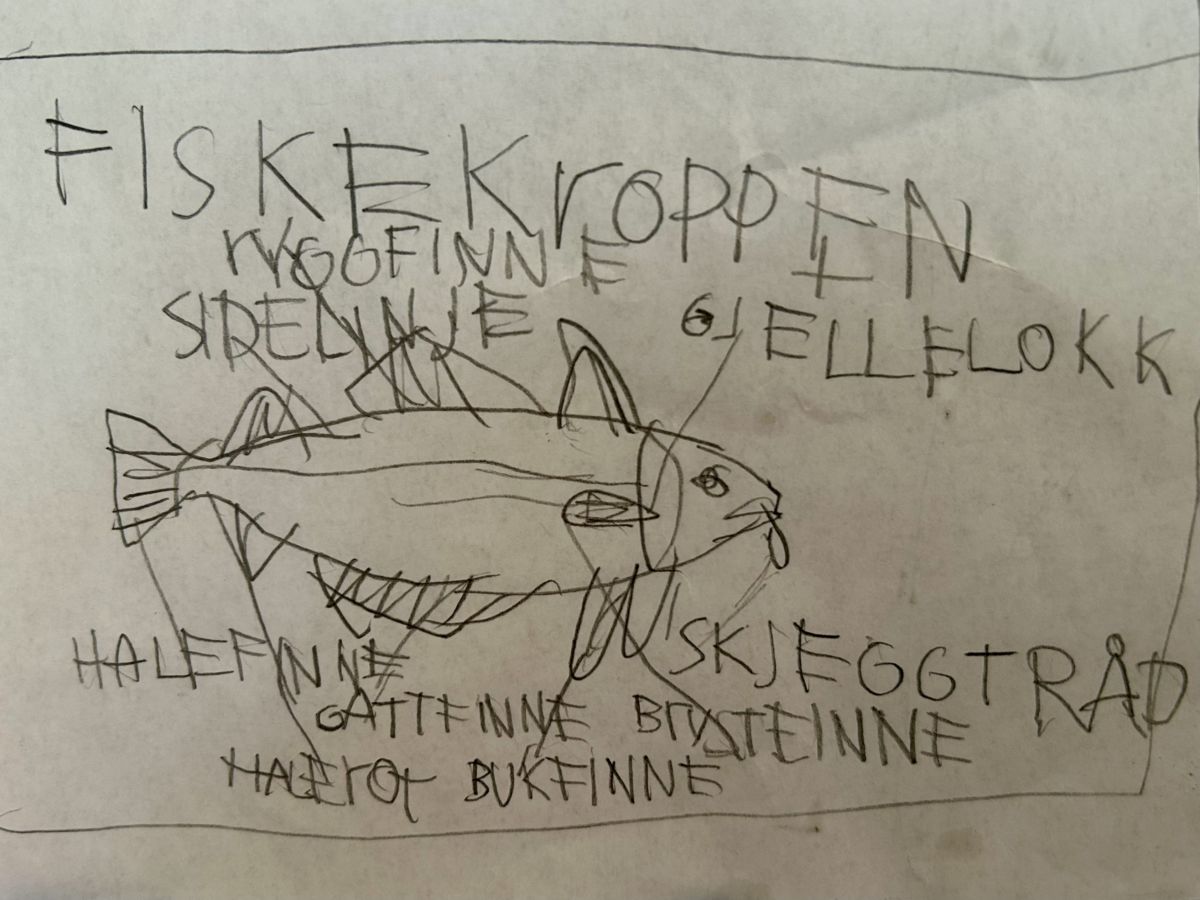 FISKEKroPPEN
rYGGFINNE
SIDELINJE
GJELLELOKK
HALEFINNE
SKJEGGTRÅD
GATTFINNE
BrYSTFINNE
HALErOt
BUKFINNE